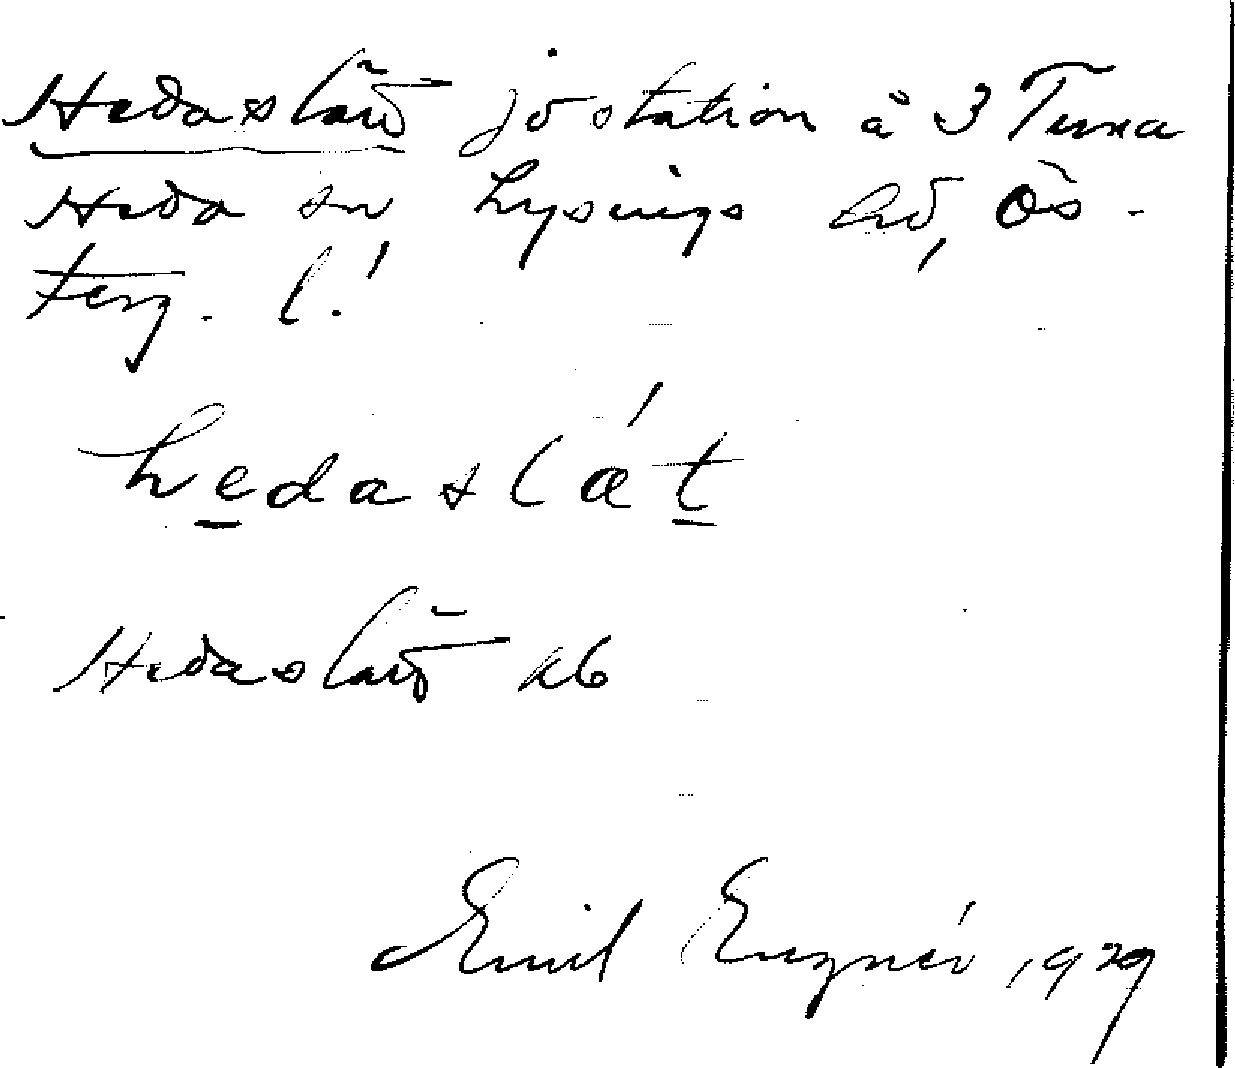 Hedaslätt jvstation å 3 Tuna
Heda sn Lysings hd, Ös-
terg. l.!
hedaslä́t
Hedaslätt ab
Emil Engnér, 1929